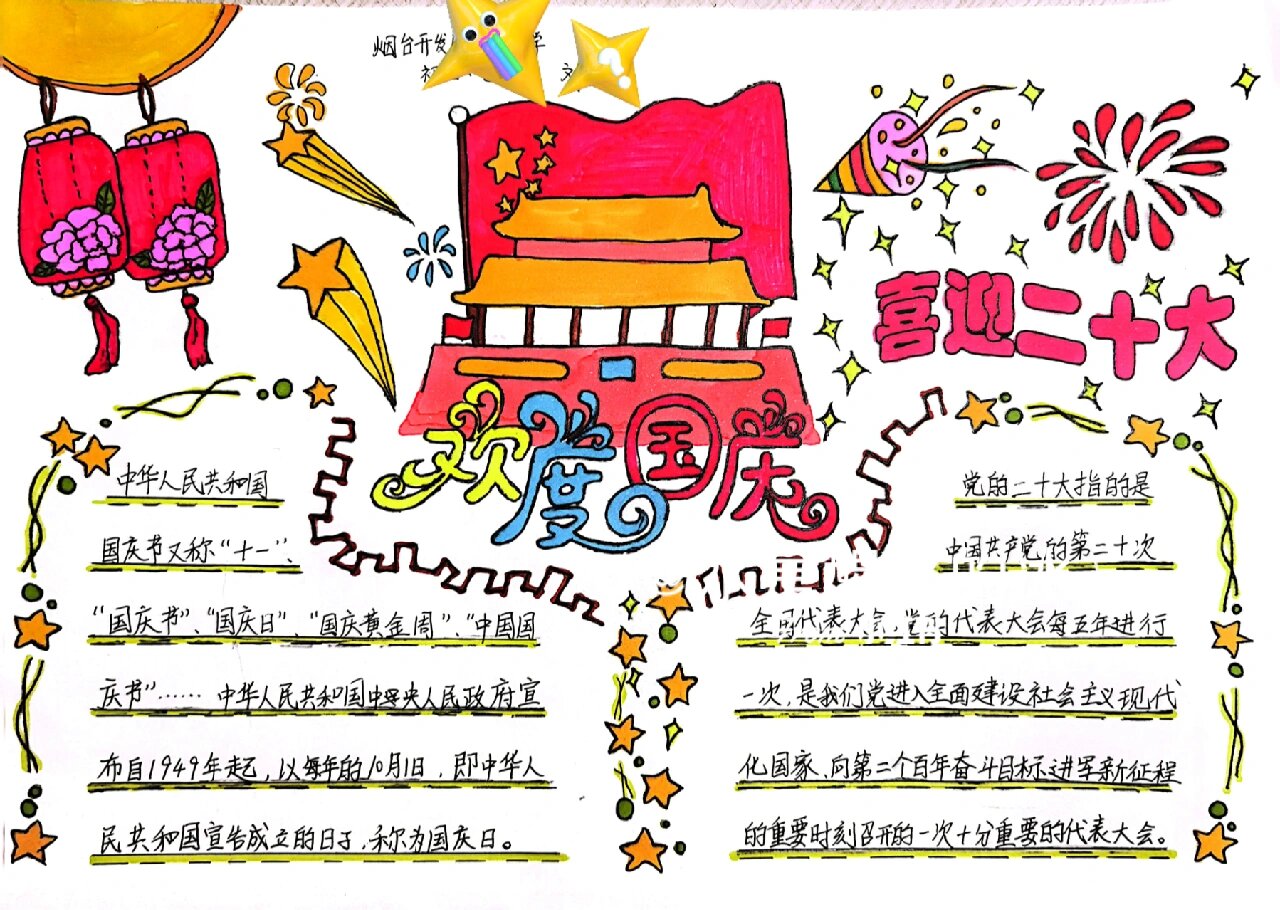 烟台开发
喜迎二十大
欢度国庆
中华人民共和国
国庆节又称“十一”、
“国庆节”、“国庆日”、“国庆黄金周”、“中国国
庆节”…… 中华人民共和国中央人民政府宣
布自1949年起，以每年的10月1日，即中华人
民共和国宣告成立的日子，称为国庆日。
党的二十大指的是
中国共产党的第二十次
全国代表大会，党的代表大会每五年进行
一次，是我们党进入全面建设社会主义现代
化国家、向第二个百年奋斗目标进军新征程
的重要时刻召开的一次十分重要的代表大会。